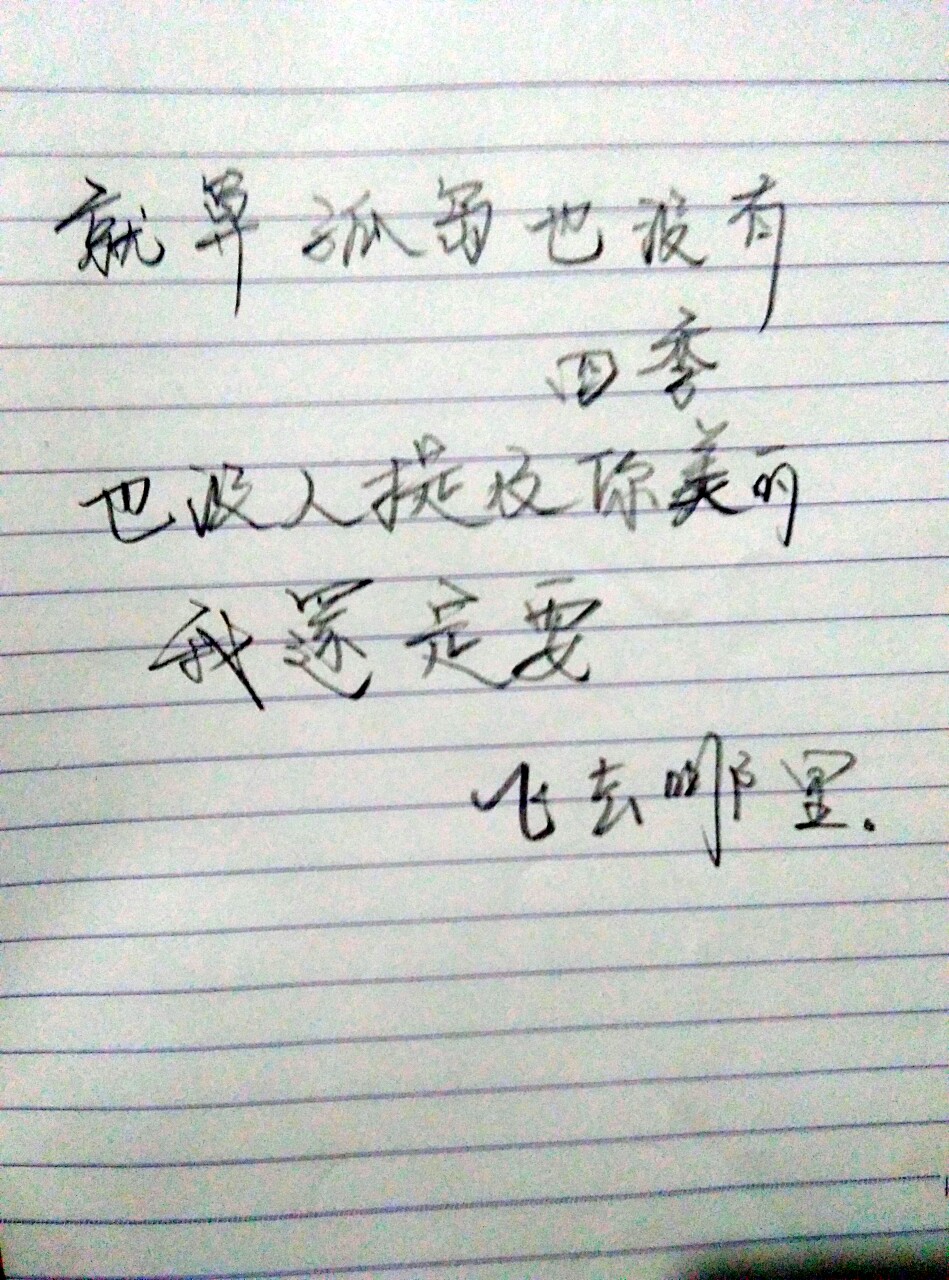 就算孤岛也没有
四季
也没人提及你美丽
我還是要
飞去哪里.